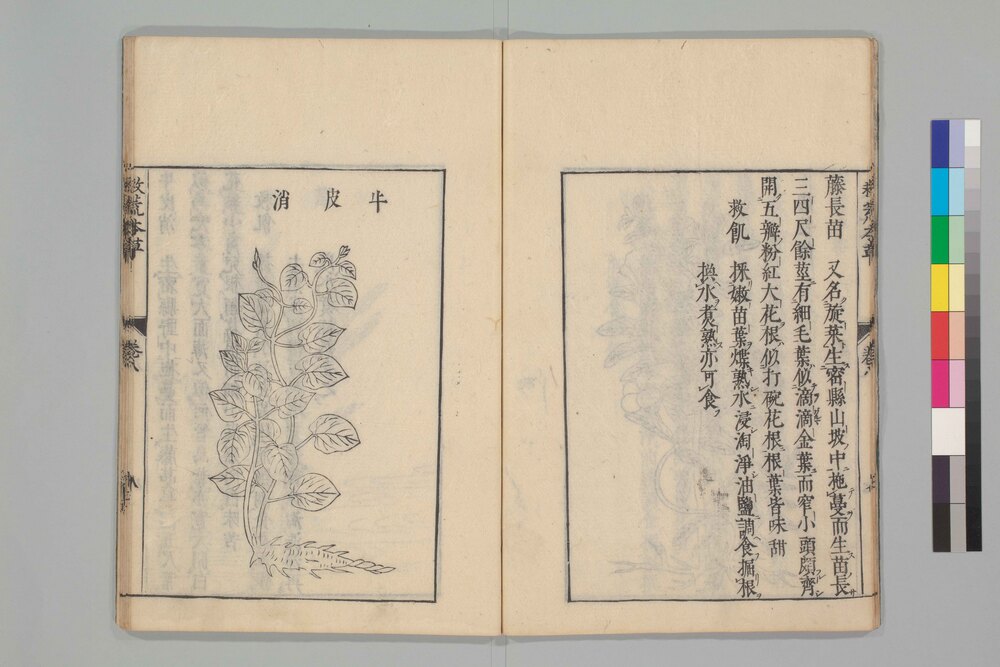 藤長苗　又名旋菜生密縣山坡中拖蔓而生苗長
三四尺餘莖有細毛葉似滴滴金葉而窄小頭頗齊
開五瓣粉紅大花根似打碗花根根葉皆味甜
救飢　採嫩苗葉煠熟水浸淘淨油鹽調食掘根
換水煮熟亦可食
牛皮消
救荒本草
卷八